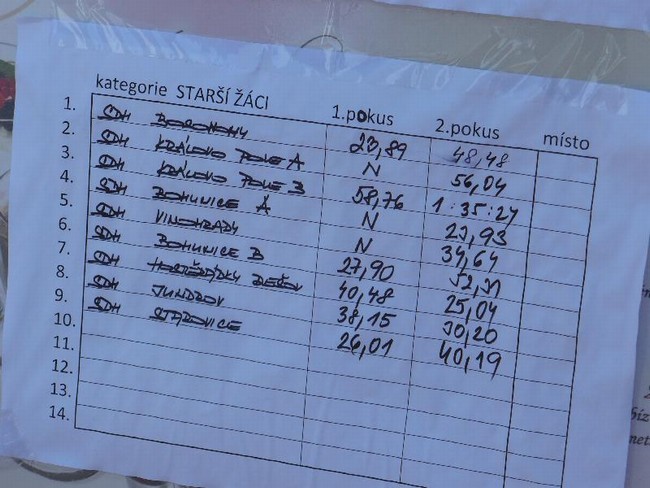 kategorie STARŠÍ ŽÁCI 1.pokus 2.pokus místo
1. SDH BOSONOHY 23,89 48,48
2. SDH KRÁLOVO POLE A N 56,04
3. SDH KRÁLOVO POLE B 58,76 1:35:27
4. SDH BOHUNICE A N 23,93
5. SDH VINOHRADY N 34,64
6. SDH BOHUNICE B 27,90 52,31
7. SDH 40,48 25,04
8. SDH JUNDROV 38,15 30,20
9. SDH STAROVICE 26,01 40,19
10.
11.
12.
13.
14.